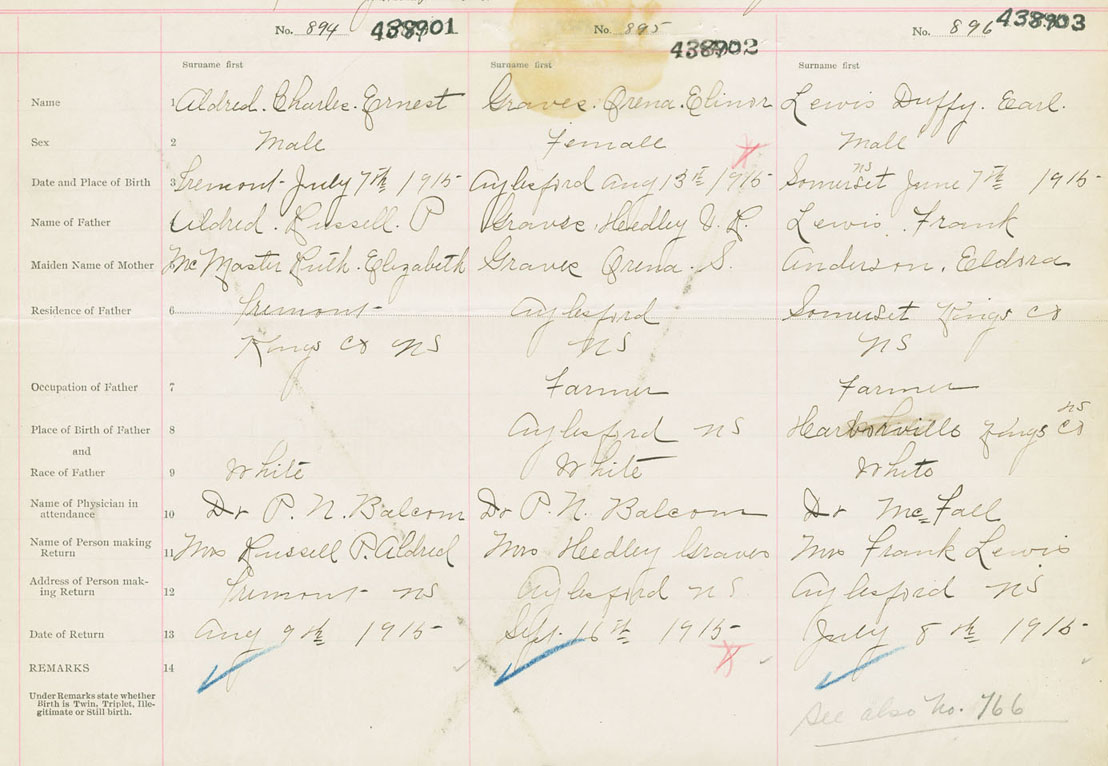 No. 894 438901 No. 895 438902 No. 896 438903
Surname first Surname first Surname first
Name 1 Aldred. Charles. Ernest Graves. Orena. Elinor Lewis Duffy. Earl.
Sex 2 Male Female Male
Date and Place of Birth 3 Tremont - July 7th 1915 Aylesford Aug 13th 1915 Somerset NS June 7th 1915
Name of Father Aldred. Russell. P Graves Hedley V. R. Lewis. Frank
Maiden Name of Mother McMaster Ruth. Elizabeth Graves Orena. S. Anderson. Eldora
Residence of Father 6 Tremont Aylesford Somerset Kings Co
Kings Co NS NS NS
Occupation of Father 7 Farmer Farmer
Place of Birth of Father 8 Aylesford NS Harborville Kings Co NS
and
Race of Father 9 White White White
Name of Physician in
attendance 10 Dr P. N. Balcom Dr P. N. Balcom Dr McFall
Name of Person making
Return 11 Mrs Russell P. Aldred Mrs Hedley Graves Mrs Frank Lewis
Address of Person mak-
ing Return 12 Tremont NS Aylesford NS Aylesford NS
Date of Return 13 Aug 9th 1915 Sept. 16th 1915 July 8th 1915
REMARKS 14
Under Remarks state whether
Birth is Twin, Triplet, Ille-
gitimate or Still birth.
See also No. 766